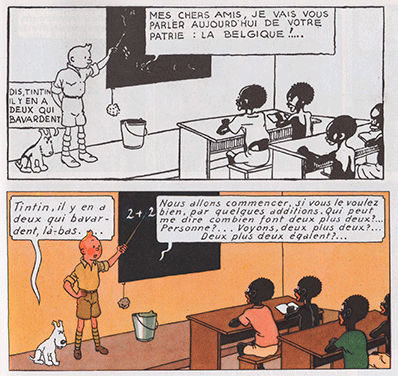 MES CHERS AMIS, JE VAIS VOUS
PARLER AUJOURD'HUI DE VOTRE
PATRIE : LA BELGIQUE !....
DIS, TINTIN,
IL Y EN A
DEUX QUI
BAVARDENT
Tintin, il y en a
deux qui bavar-
dent, là-bas. . . .
2+2
Nous allons commencer, si vous le voulez
bien, par quelques additions. Qui peut
me dire combien font deux plus deux?...
Personne?. . . Voyons, deux plus deux?...
Deux plus deux égalent?...